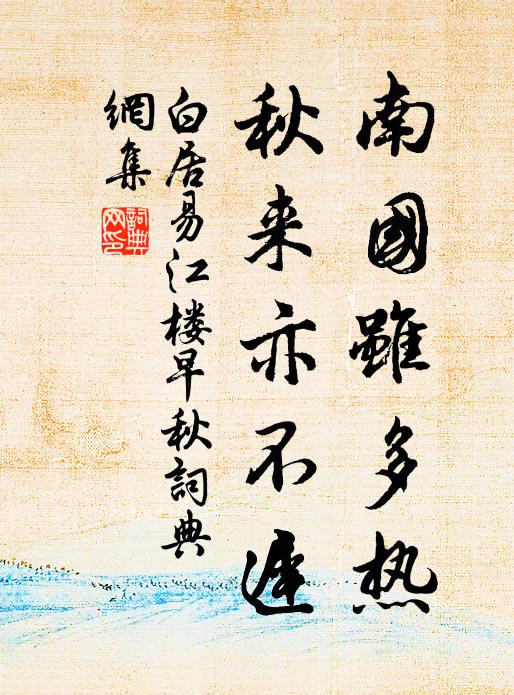 南國雖多热
秋来亦不遲
白居易江楼早秋詞典
網集
詞典
网印